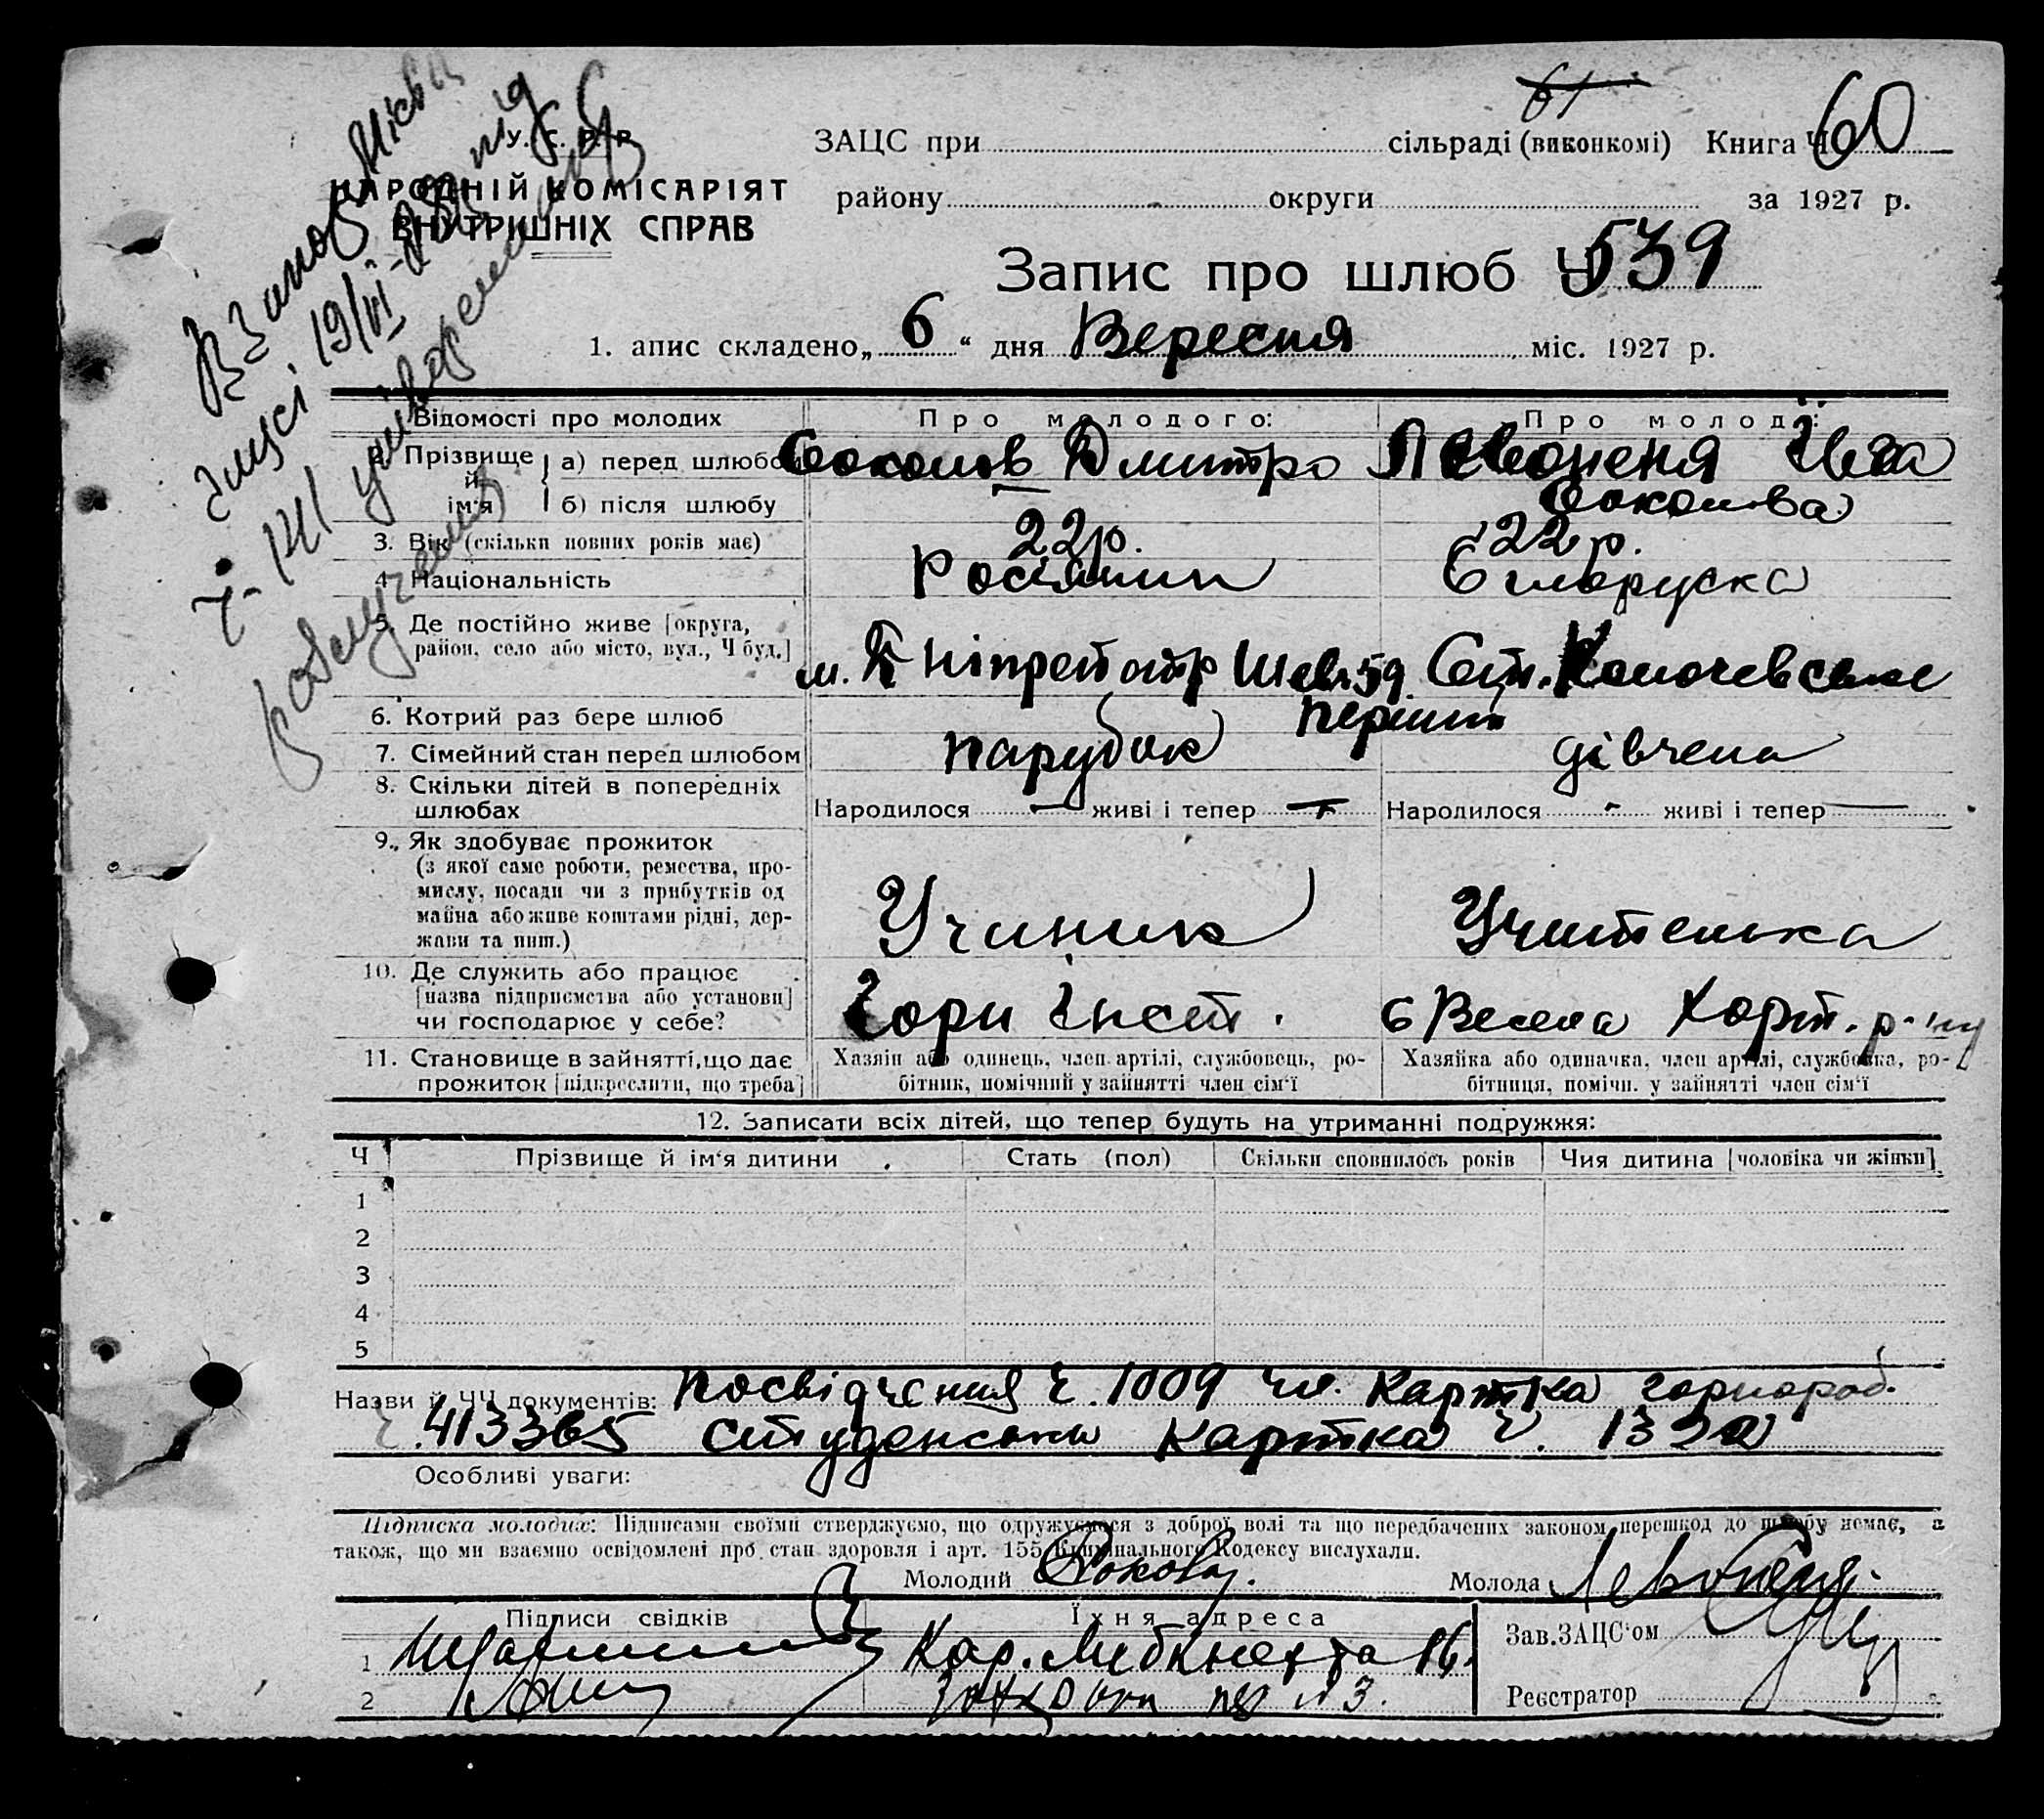 61
У. С. Р. Р.
НАРОДНІЙ КОМІСАРІЯТ
ВНУТРІШНІХ СПРАВ
ЗАЦС при сільраді (виконкомі) Книга Ч 60
району округи за 1927 р.
Запис про шлюб Ч 539
1. апис складено „ 6 “ дня Вересня міс. 1927 р.
Відомості про молодих Про молодого: Про молоду:
2. Прізвище й ім'я а) перед шлюбом Соколов Дмитро Левоненя
б) після шлюбу Соколова
3. Вік (скільки повних років має) 22р. 22р.
4. Національність Росіянин Білоруска
5. Де постійно живе [округа,
район, село або місто, вул., Ч буд.] м. Дніпропетр Шевч 59
6. Котрий раз бере шлюб перший
7. Сімейний стан перед шлюбом парубок дівчена
8. Скільки дітей в попередніх
шлюбах Народилося — живі і тепер — Народилося - живі і тепер —
9. Як здобуває прожиток
(з якої саме роботи, ремества, про-
мислу, посади чи з прибутків од
майна або живе коштами рідні, дер-
жави та инш.) Учиник Учителька
10. Де служить або працює
[назва підприємства або установи]
чи господарює у себе? Горн Інст. с Весела Хорт. р-ну
11. Становище в зайнятті, що дає
прожиток [підкреслити, що треба]
Хазяїн або одинець, член артілі, службовець, ро-
бітник, помічний у зайнятті член сім'ї
Хазяйка або одиначка, член артілі, службовка, ро-
бітниця, помічн. у зайнятті член сім'ї
12. Записати всіх дітей, що тепер будуть на утриманні подружжя:
Ч Прізвище й ім'я дитини Стать (пол) Скільки сповнилось років Чия дитина [чоловіка чи жінки]
1
2
3
4
5
Назви й ЧЧ документів: посвідчення ч. 1009 чл. картка горнороб.
ч. 413365 студенська картка ч.
Особливі уваги:
Підписка молодих: Підписами своїми стверджуємо, що одружуємося з доброї волі та що передбачених законом перешкод до шлюбу немає, а
також, що ми взаємно освідомлені про стан здоровля і арт. 155 Кримінального Кодексу вислухали.
Молодий Молода
Підписи свідків Їхня адреса Зав. ЗАЦС'ом
1 Кар. Либкнехта 16.
2 3. Реєстратор